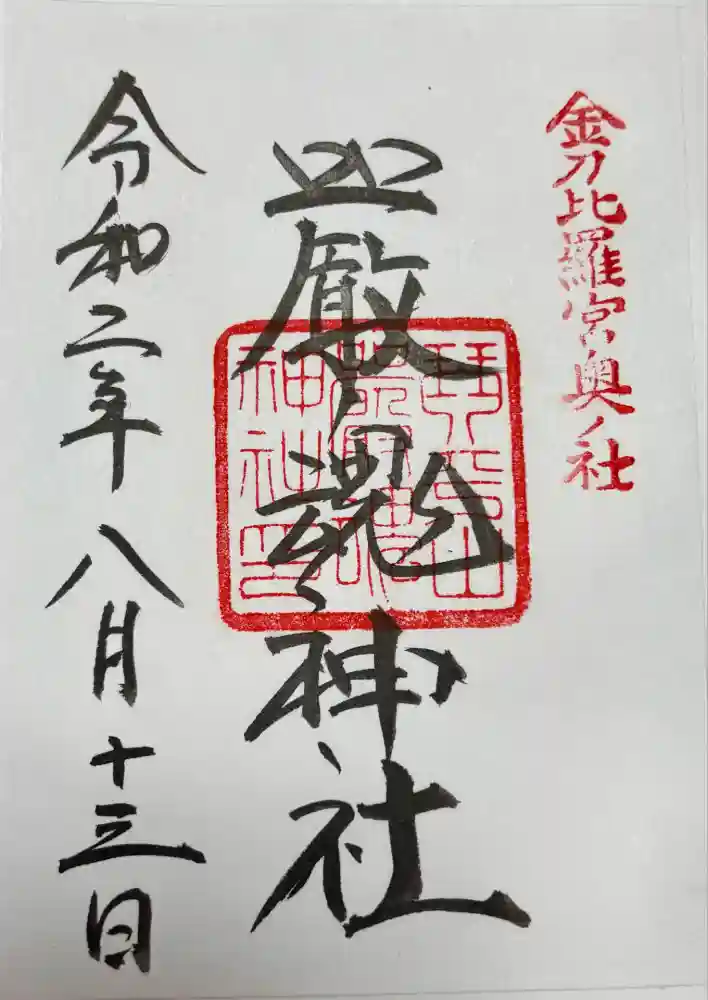 金刀比羅宮奥ノ社
嚴魂神社
琴平山
嚴魂
神社印
令和二年八月十三日